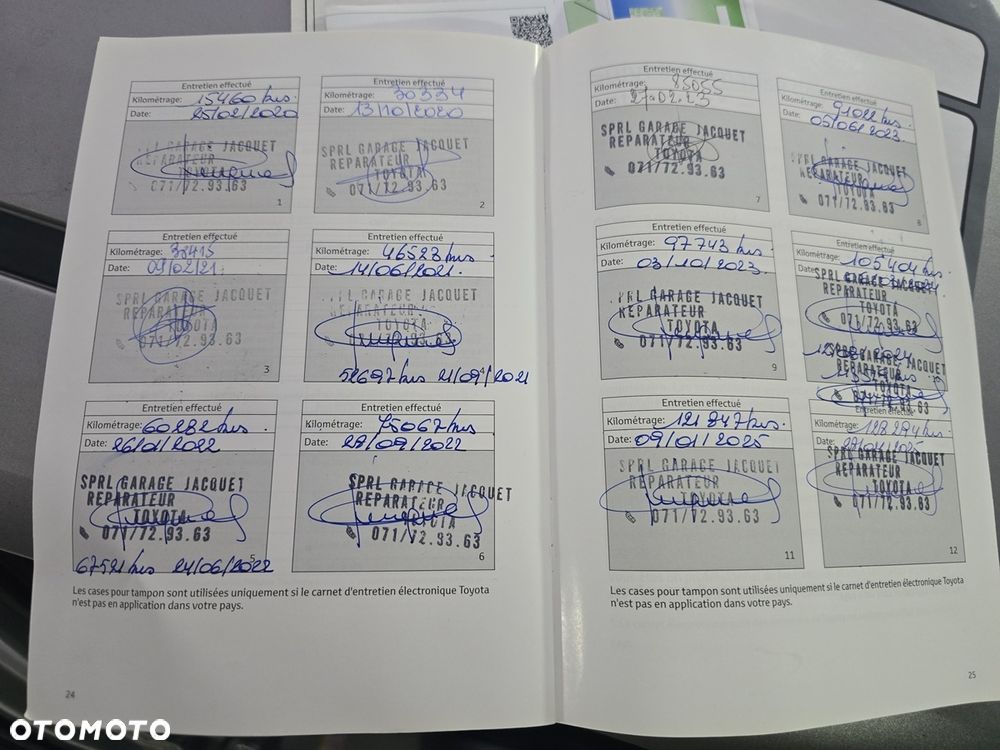 Entretien effectué
Kilométrage: 15460 kms.
Date: 25/02/2020
GARAGE JACQUET
REPARATEUR
TOYOTA
071/72.93.63
1
Entretien effectué
Kilométrage: 30334
Date: 13/10/2020
SPRL GARAGE JACQUET
REPARATEUR
TOYOTA
071/72.93.63
2
Entretien effectué
Kilométrage: 38415
Date: 09/02/21.
SPRL GARAGE JACQUET
REPARATEUR
TOYOTA
071/72.93.63
3
Entretien effectué
Kilométrage: 46523 kms.
Date: 14/06/2021.
GARAGE JACQUET
REPARATEUR
TOYOTA
071/72.93.63
4
52697 kms 21/09/2021
Entretien effectué
Kilométrage: 60282 kms.
Date: 26/01/2022
SPRL GARAGE JACQUET
REPARATEUR
TOYOTA
071/72.93.63
5
67521 kms 24/06/2022
Entretien effectué
Kilométrage: 75067 kms.
Date: 28/09/2022
SPRL GARAGE JACQUET
REPARATEUR
TOYOTA
071/72.93.63
6
Les cases pour tampon sont utilisées uniquement si le carnet d'entretien électronique Toyota
n'est pas en application dans votre pays.
24
Entretien effectué
Kilométrage: 85055
Date: 27.02.23
SPRL GARAGE JACQUET
REPARATEUR
TOYOTA
071/72.93.63
7
Entretien effectué
Kilométrage: 91022 kms.
Date: 05/06/2023.
SPRL GARAGE JACQUET
REPARATEUR
TOYOTA
071/72.93.63
8
Entretien effectué
Kilométrage: 97743 kms
Date: 03/10/2023.
SPRL GARAGE JACQUET
REPARATEUR
TOYOTA
071/72.93.63
9
Entretien effectué
Kilométrage: 105404 kms.
Date:
SPRL GARAGE JACQUET
REPARATEUR
TOYOTA
071/72.93.63
SPRL GARAGE JACQUET
REPARATEUR
TOYOTA
071/72.93.63
10
Entretien effectué
Kilométrage: 121847 kms.
Date: 09/01/2025
SPRL GARAGE JACQUET
REPARATEUR
TOYOTA
071/72.93.63
11
Entretien effectué
Kilométrage: 128294 kms.
Date:
SPRL GARAGE JACQUET
REPARATEUR
TOYOTA
071/72.93.63
12
Les cases pour tampon sont utilisées uniquement si le carnet d'entretien électronique Toyota
n'est pas en application dans votre pays.
25
OTOMOTO